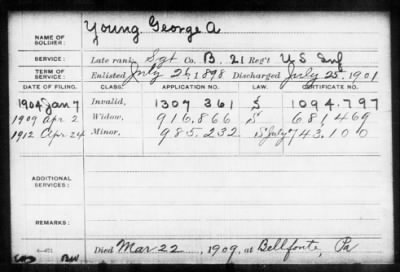 Young George A
NAME OF SOLDIER:
SERVICE: Late rank, Sgt Co. B, 21 Reg't U S Inf
TERM OF SERVICE: Enlisted July 26, 1898 Discharged July 25, 1901
DATE OF FILING. CLASS. APPLICATION NO. LAW. CERTIFICATE NO.
1904 Jan 7 Invalid, 1307 361 1094.797
1909 Apr 2 Widow, 916.866 681,469
1912 Apr 24 Minor, 985.232 743,100
ADDITIONAL SERVICES:
REMARKS:
Died Mar 22, 1909, at Bellfonte, Pa